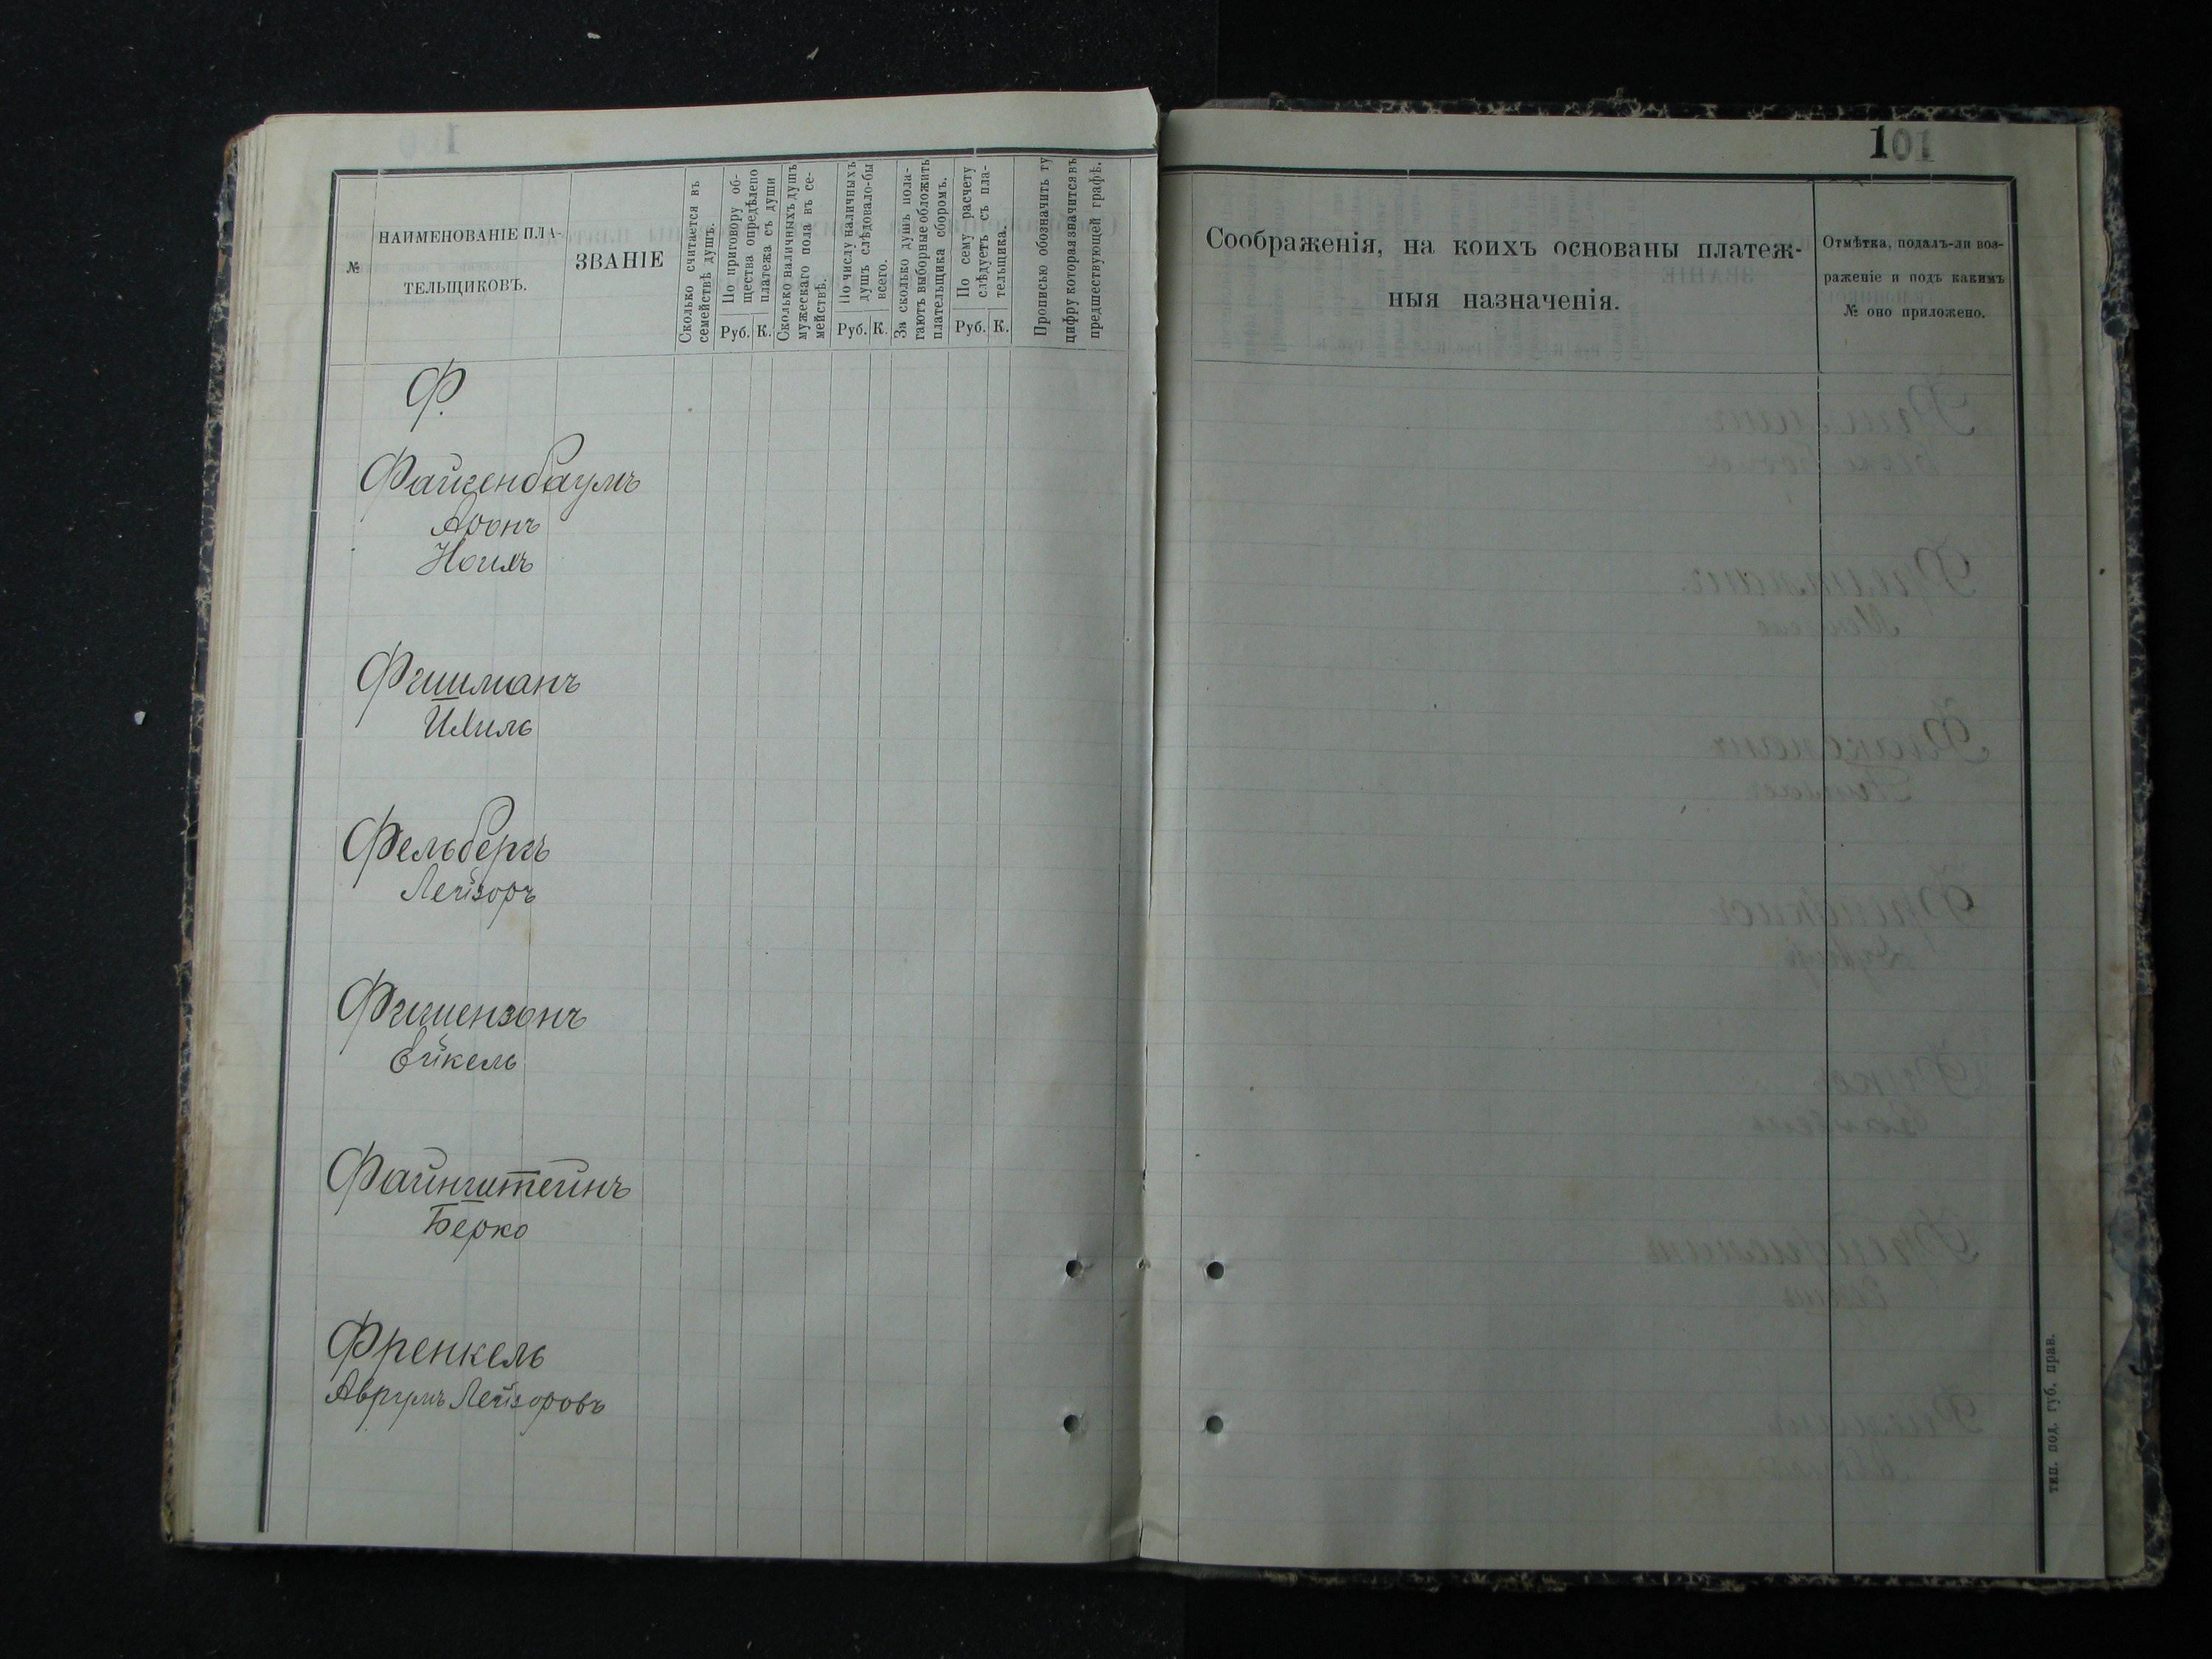 101
№
НАИМЕНОВАНІЕ ПЛА-
ТЕЛЬЩИКОВЪ.
ЗВАНІЕ
Сколько считается въ
семействѣ душъ.
По приговору об-
щества опредѣлено
платежа съ души
Руб. К.
Сколько наличныхъ душъ
мужескаго пола въ се-
мействѣ.
По числу наличныхъ
душъ слѣдовало-бы
всего.
Руб. К.
За сколько душъ пола-
гаютъ выборные обложить
плательщика сборомъ.
По сему расчету
слѣдуетъ съ пла-
тельщика.
Руб. К.
Прописью обозначить ту
цифру которая значится въ
предшествующей графѣ.
Соображенія, на коихъ основаны платеж-
ныя назначенія.
Отмѣтка, подалъ-ли воз-
раженіе и подъ какимъ
№ оно приложено.
Ф.
Файгенбаумъ
Аронъ
Ноихъ
Фишманъ
Ихиль
Фельбергъ
Лейзоръ
Фишензонъ
Ейкель
Файнштейнъ
Берко
Френкель
Аврумъ Лейзоровъ
тип. под. губ. прав.